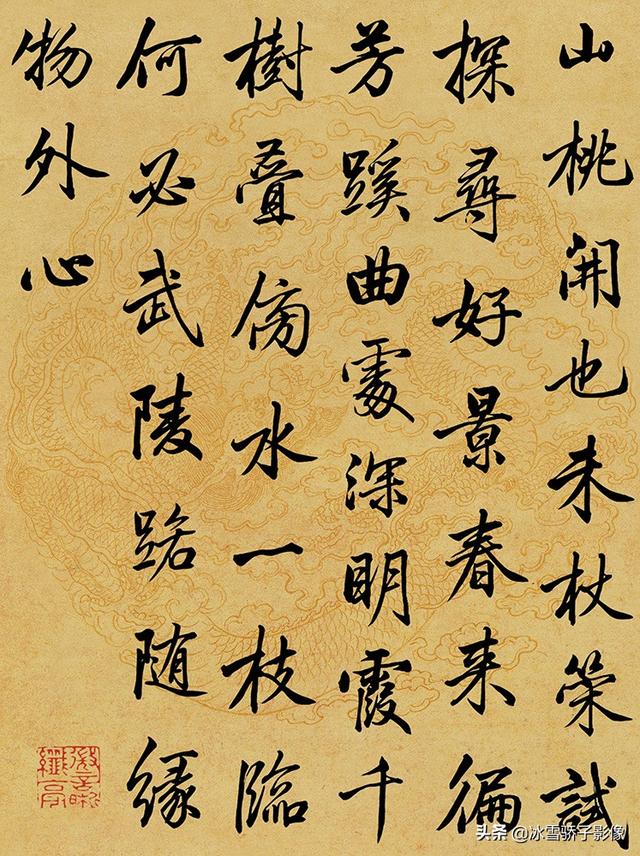 山桃開也未杖策試
探尋好景春来徧
芳蹊曲處深明霞千
樹疊傍水一枝臨
何必武陵路随緣
物外心
头条 @冰雪骄子影像